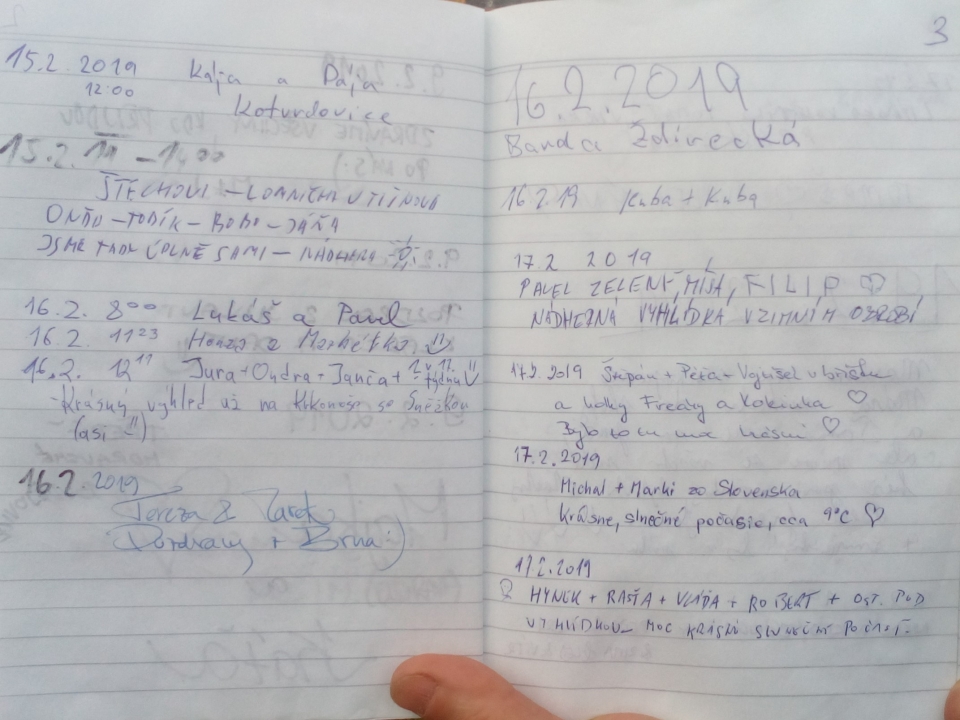 15.2. 2019 Kája a Pája
12:00 Koturdovice
15.2. 11 - 14 00
ŠTĚCHOVI - LOMNIČKA U TIŠNOVA
ONDO - TODÍK - BOBO - JÁŇA
JSME TADY ÚPLNĚ SAMI - NÁDHERA
16.2. 8 00 Lukáš a Pavel
16.2. 11 23 Honza a Markétka
16.2. 12 11 Jura + Ondra + Janča + 1 v 17. týdnu
- Krásný výhled až na Krkonoše se Sněžkou
(asi )
16.2. 2019
Tereza & Marek
Pozdravy z Brna :)
3
16.2.2019
Banda Ždírecká
16.2.19 Kuba + Kuba
17.2 2019
PAVEL ZELENÝ, MÍŠA, FILIP ♡
NÁDHERNÁ VYHLÍDKA V ZIMNÍM OBDOBÍ
17.2.2019 Štěpán + Péťa + Vojtíšek v bříšku
a holky Fredy a Kokinka ♡
Bylo to tu moc krásné ♡
17.2.2019
Michal + Marki zo Slovenska
Krásne, slnečné počasie, cca 9°C ♡
17.2.2019
HYNEK + RAŠŤA + VLÁĎA + ROBERT + OST. POD
VYHLÍDKOU - MOC KRÁSNÉ SLUNEČNÉ POČASÍ.